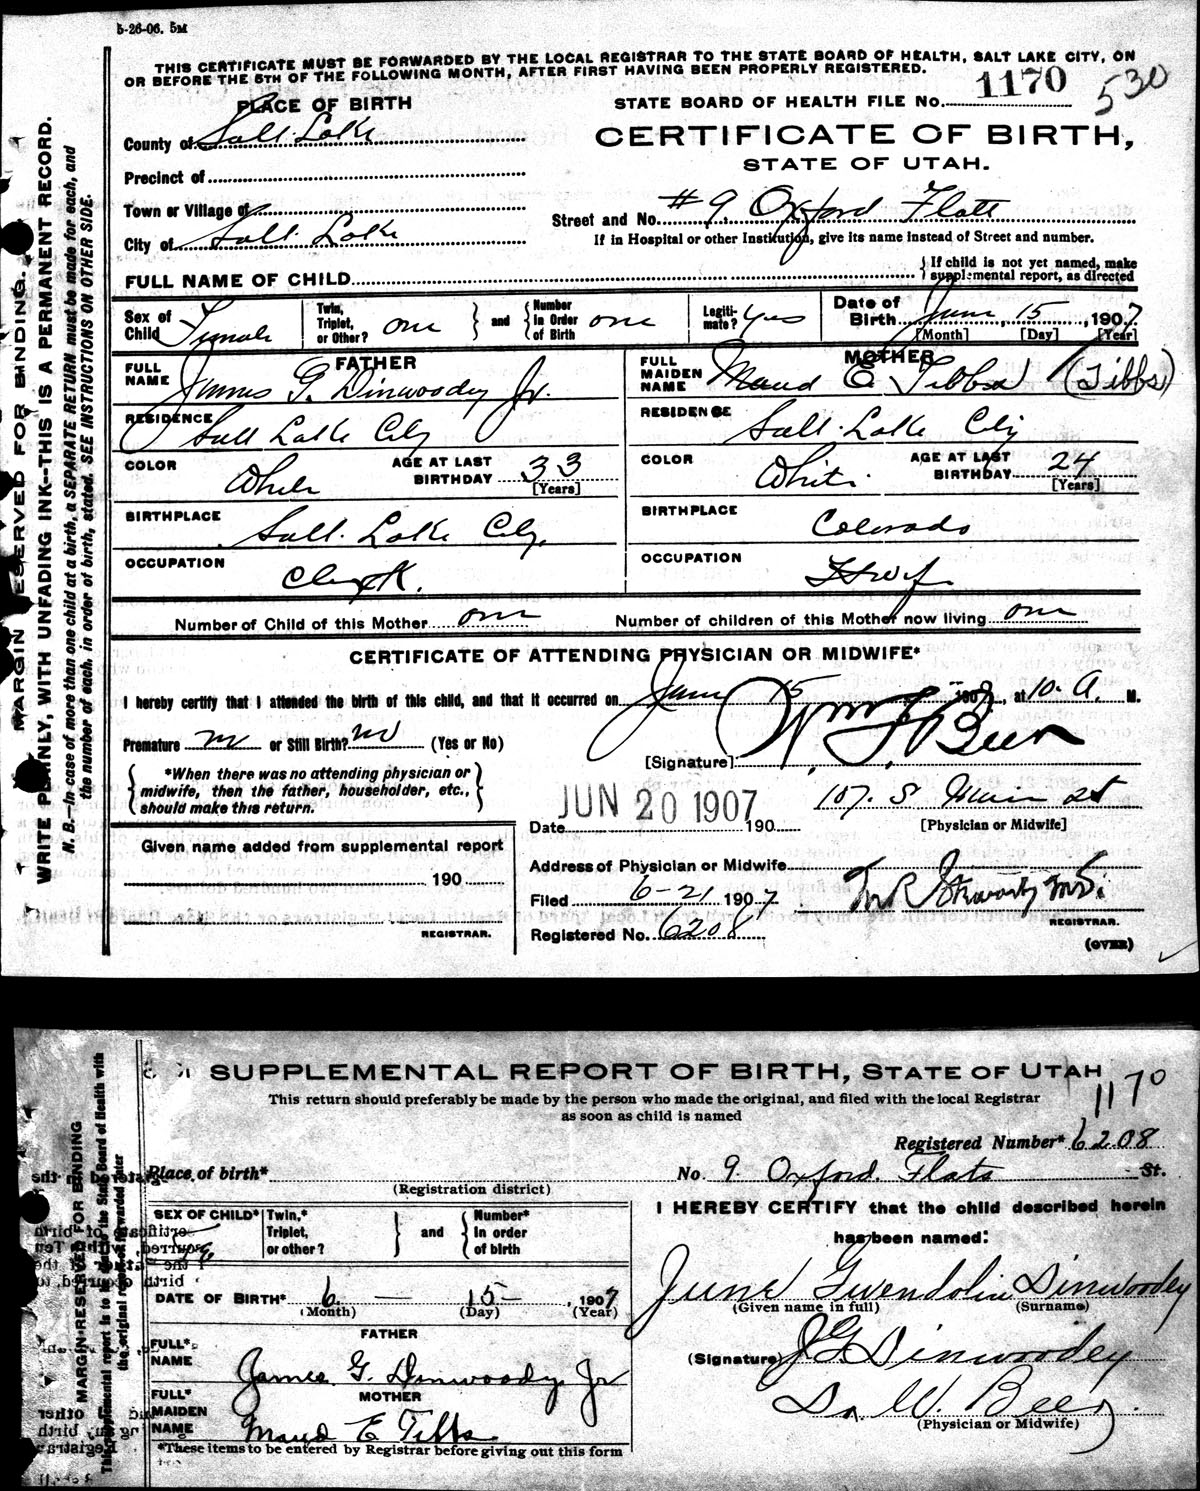 5-26-06. 5M
THIS CERTIFICATE MUST BE FORWARDED BY THE LOCAL REGISTRAR TO THE STATE BOARD OF HEALTH, SALT LAKE CITY, ON
OR BEFORE THE 5TH OF THE FOLLOWING MONTH, AFTER FIRST HAVING BEEN PROPERLY REGISTERED.
PLACE OF BIRTH
STATE BOARD OF HEALTH FILE No. 1170 530
County of Salt Lake
CERTIFICATE OF BIRTH,
STATE OF UTAH.
Precinct of
Town or Village of
Street and No. #9 Oxford Flatt
City of Salt Lake
If in Hospital or other Institution, give its name instead of Street and number.
FULL NAME OF CHILD
If child is not yet named, make
supplemental report, as directed
Sex of Child Female
Twin, Triplet, or Other? one
and
Number in Order of Birth one
Legiti-mate? yes
Date of Birth June, 15, 1907
[Month] [Day] [Year]
FATHER
FULL NAME James G. Dinwoody Jr.
MOTHER
FULL MAIDEN NAME Maud E Tibbs (Tibbs)
RESIDENCE Salt Lake City
RESIDENCE Salt Lake City
COLOR White
AGE AT LAST BIRTHDAY 33
[Years]
COLOR White
AGE AT LAST BIRTHDAY 24
[Years]
BIRTHPLACE Salt Lake City
BIRTHPLACE Colorado
OCCUPATION Clerk.
OCCUPATION Hswife
Number of Child of this Mother one
Number of children of this Mother now living one
CERTIFICATE OF ATTENDING PHYSICIAN OR MIDWIFE*
I hereby certify that I attended the birth of this child, and that it occurred on June 15 1907, at 10. A. M.
Premature no or Still Birth? no (Yes or No)
[Signature] Wm. F. Beer
*When there was no attending physician or
midwife, then the father, householder, etc.,
should make this return.
JUN 20 1907
107. S Main St
Date 190
[Physician or Midwife]
Given name added from supplemental report
190
REGISTRAR.
Address of Physician or Midwife
Filed 6-21 1907
REGISTRAR.
Registered No. 6208
(OVER)
MARGIN RESERVED FOR BINDING.
WRITE PLAINLY, WITH UNFADING INK--THIS IS A PERMANENT RECORD.
N. B.—In case of more than one child at a birth, a SEPARATE RETURN must be made for each, and
the number of each, in order of birth, stated. SEE INSTRUCTIONS ON OTHER SIDE.
SUPPLEMENTAL REPORT OF BIRTH, STATE OF UTAH
1170
This return should preferably be made by the person who made the original, and filed with the local Registrar
as soon as child is named
Registered Number* 6208
Place of birth*
No. 9. Oxford. Flats St.
(Registration district)
SEX OF CHILD*
Twin,* Triplet, or other?
and
Number* in order of birth
I HEREBY CERTIFY that the child described herein
has been named:
DATE OF BIRTH* 6 — 15 — , 1907
(Month) (Day) (Year)
June Gwendolin Dinwoodey
(Given name in full) (Surname)
FATHER
FULL* NAME James G. Dinwoody Jr
(Signature) JG Dinwoodey
MOTHER
FULL* MAIDEN NAME Maud E Tibbs
Dr. W. Beer.
(Physician or Midwife)
*These items to be entered by Registrar before giving out this form
MARGIN RESERVED FOR BINDING